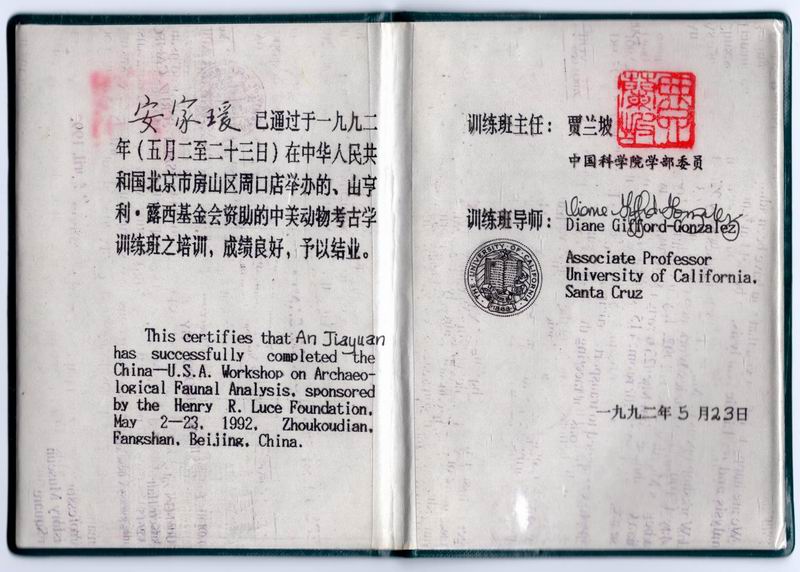 安家瑗 已通过于一九九二
年（五月二至二十三日）在中华人民共
和国北京市房山区周口店举办的、山亨
利·露西基金会资助的中美动物考古学
训练班之培训，成绩良好，予以结业。
This certifies that An Jiayuan
has successfully completed the
China—U.S.A. Workshop on Archaeo-
logical Faunal Analysis, sponsored
by the Henry R. Luce Foundation,
May 2—23, 1992, Zhoukoudian,
Fangshan, Beijing, China.
训练班主任： 贾兰坡
中国科学院学部委员
训练班导师： Diane Gifford-Gonzalez
Diane Gifford-Gonzalez
Associate Professor
University of California,
Santa Cruz
THE UNIVERSITY OF CALIFORNIA
1868
一九九二年 5 月23日